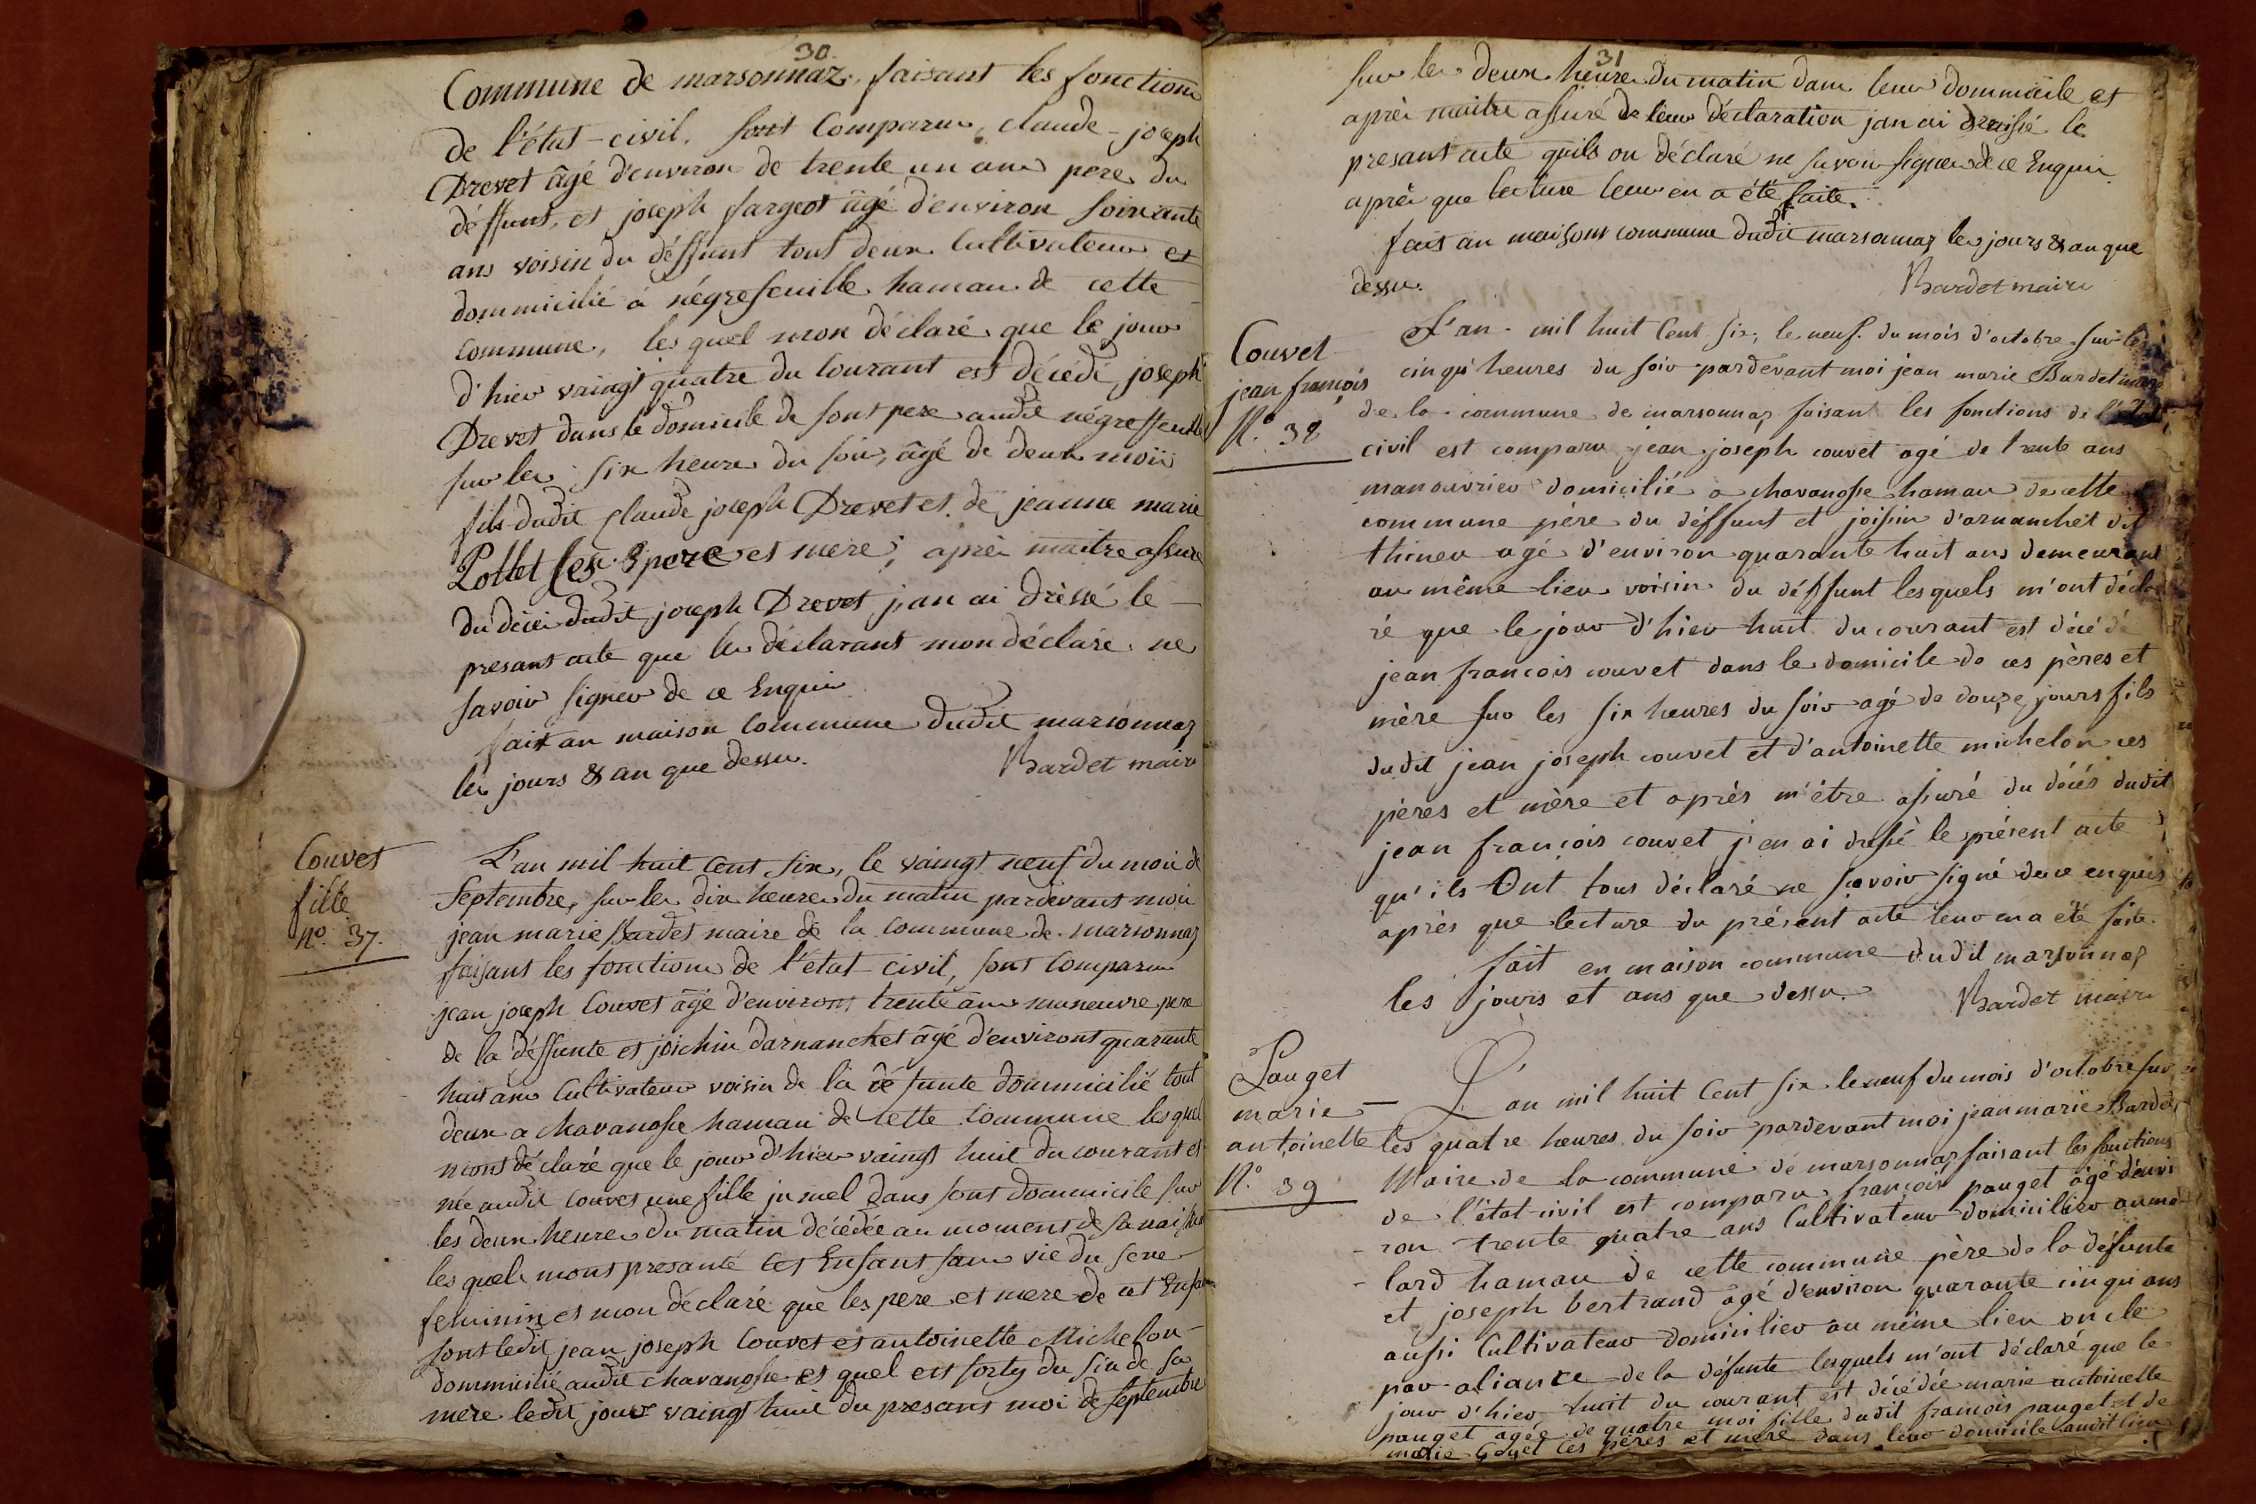 30
Commune de marsonnaz, faisant les fonctions
de l'état-civil, sont Comparu, claude-joseph
Drevet âgé d'environ de trente un ans pere du
déffunt, et joseph fargeot âgé d'environ soixante
ans voisin du déffunt tout deux Cultivateur et
dommicilié à négrefeuille hamau de cette
commune, les quel mon déclaré que le jour
d'hier vaingt quatre du Courant est décédé joseph
Drevet dans le domicile de sont pere audit négreffeuille
sur les six heure du soir, âgé de deux mois
fils dudit Claude joseph Drevet et de jeanne marie
Pollet ses pere et mere; aprèi maitre assure
du décéi dudit joseph Drevet j'an ai drèssé le
presant acte que les déclarant mon déclaré ne
savoir signer de ce Enquis
fait an maison Commune dudit marsonnaz
les jours & an que dessu.
Bardet maire
Couvet
fille
N°. 37.
L'an mil huit Cent six, le vaingt neuf du moi de
Septembre, sur les dix heure du matin pardevant moi
jean marie Bardet maire de la Commune de marsonnaz
faisant les fonctions de l'état civil, sont Comparu
jean joseph Couvet âgé d'environt trente ans maneuvre pere
de la déffunte et joichin darnanchet âgé d'environt quarante
huit ans Cultivateur voisin de la défunte dommicilié tout
deux a Chavanosse hamau de Cette Commune lesquel
mont déclaré que le jour d'hier vaingt huit du courant et
née audit couvet une fille jumel dans sont dommicile sur
les deux heure du matin décédée au moment de sa naissan
les quels mont presanté Cet Enfant san vie du sexe
feminin et mon déclaré que les pere et mere de cet Enfan
sont ledit jean joseph Couvet et antoinette Michelon
dommicilié audit chavanosse et quel est sorty du sin de sa
mère ledit jour vaingt huit du presant moi de septembre
31
sur les deux heure du matin dans leur dommicile et
aprèi maitre assuré de leur déclaration jan ai dressé le
presant acte quils on déclaré ne savoir signer de ce Enquis
aprèi que lecture leur en a été faite.
fait an maisont commune dudit marsonnaz les jours & an que
dessu.
Bardet maire
Couvet
jean françois
N°. 38
L'an mil huit Cent six, le neuf du mois d'octobre sur les
cinqu'heures du soir pardevant moi jean marie Bardet maire
de la commune de marsonnaz faisant les fonctions de l'état
civil est comparu jean joseph couvet agé de trente ans
manouvrier domicilié a chavanosse hamau de cette
commune père du déffunt et joisin d'arnanchet dit
thineu agé d'environ quarante huit ans demeurant
au même lieu voisin du déffunt lesquels m'ont décla
ré que le jour d'hier huit du courant est décédé
jean francois couvet dans le domicile de ces pères et
mère sur les six heures du soir agé de douze jours fils
dudit jean joseph couvet et d'antoinette michelon ces
pères et mère et après m'être assuré du décés dudit
jean françois couvet j'en ai dressé le présent acte
qu'ils Ont tous déclaré ne savoir signé de ce enquis
après que lecture du présent acte leur en a été faite.
fait en maison commune dudit marsonnaz
les jours et ans que dessu.
Bardet maire
Pauget
marie
antoinette
N°. 39
L'an mil huit Cent six le neuf du mois d'octobre sur
les quatre heures du soir pardevant moi jean marie Bardet
Maire de la commune de marsonnaz faisant les fonctions
de l'état civil est comparu françois pauget âgé d'envi
ron trente quatre ans Cultivateur domicilier au mo
lard hamau de cette commune père de la défunte
et joseph bertrand âgé d'environ quarante cinqu ans
aussi Cultivateur domicilier au même lieu oncle
par aliance de la défunte lesquels m'ont déclaré que le
jour d'hier huit du courant est décédée marie antoinette
pauget agée de quatre moi fille dudit francois pauget et de
marie Goyet ces pères et mère dans leur domicile audit lieu